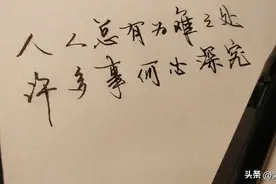 人人总有为难之处
许多事何必深究
头条